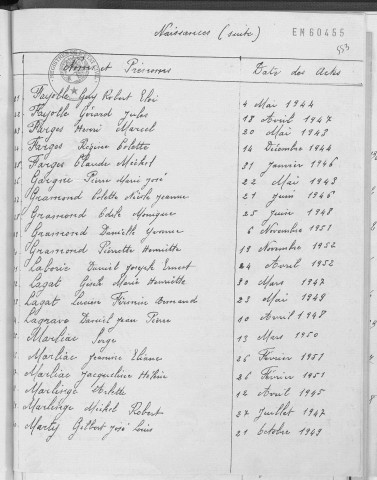 Naissances (suite)
EM60455
Noms et Prénoms Date des Actes
Fayolle Guy Robert Eloi 4 Mai 1944
Fayolle Gérard Jules 18 Avril 1947
Farges Henri Marcel 20 Mai 1943
Farges Régine Colette 14 Décembre 1944
Farges Claude Michel 31 Janvier 1946
Pierre Marie José 22 Mai 1943
Gramond Colette Nicole Jeanne 21 Juin 1946
Gramond Edith Monique 25 Juin 1948
Gramond Danielle Yvonne 6 Novembre 1951
Gramond Pierrette Henriette 19 Novembre 1952
Laborie Daniel Joseph Ernest 24 Avril 1952
Lagat Gisèle Marie Henriette 30 Mars 1947
Lagat Lucien Firmin Armand 23 Mai 1949
Lagrave Daniel Jean Pierre 10 Avril 1948
Marliac Serge 13 Mars 1950
Marliac Jeanne Eliane 26 Février 1951
Marliac Jacqueline 26 Février 1951
Marlinge Arlette 12 Avril 1945
Marlinge Michel Robert 27 Juillet 1947
Marty Gilbert José Louis 21 Octobre 1949